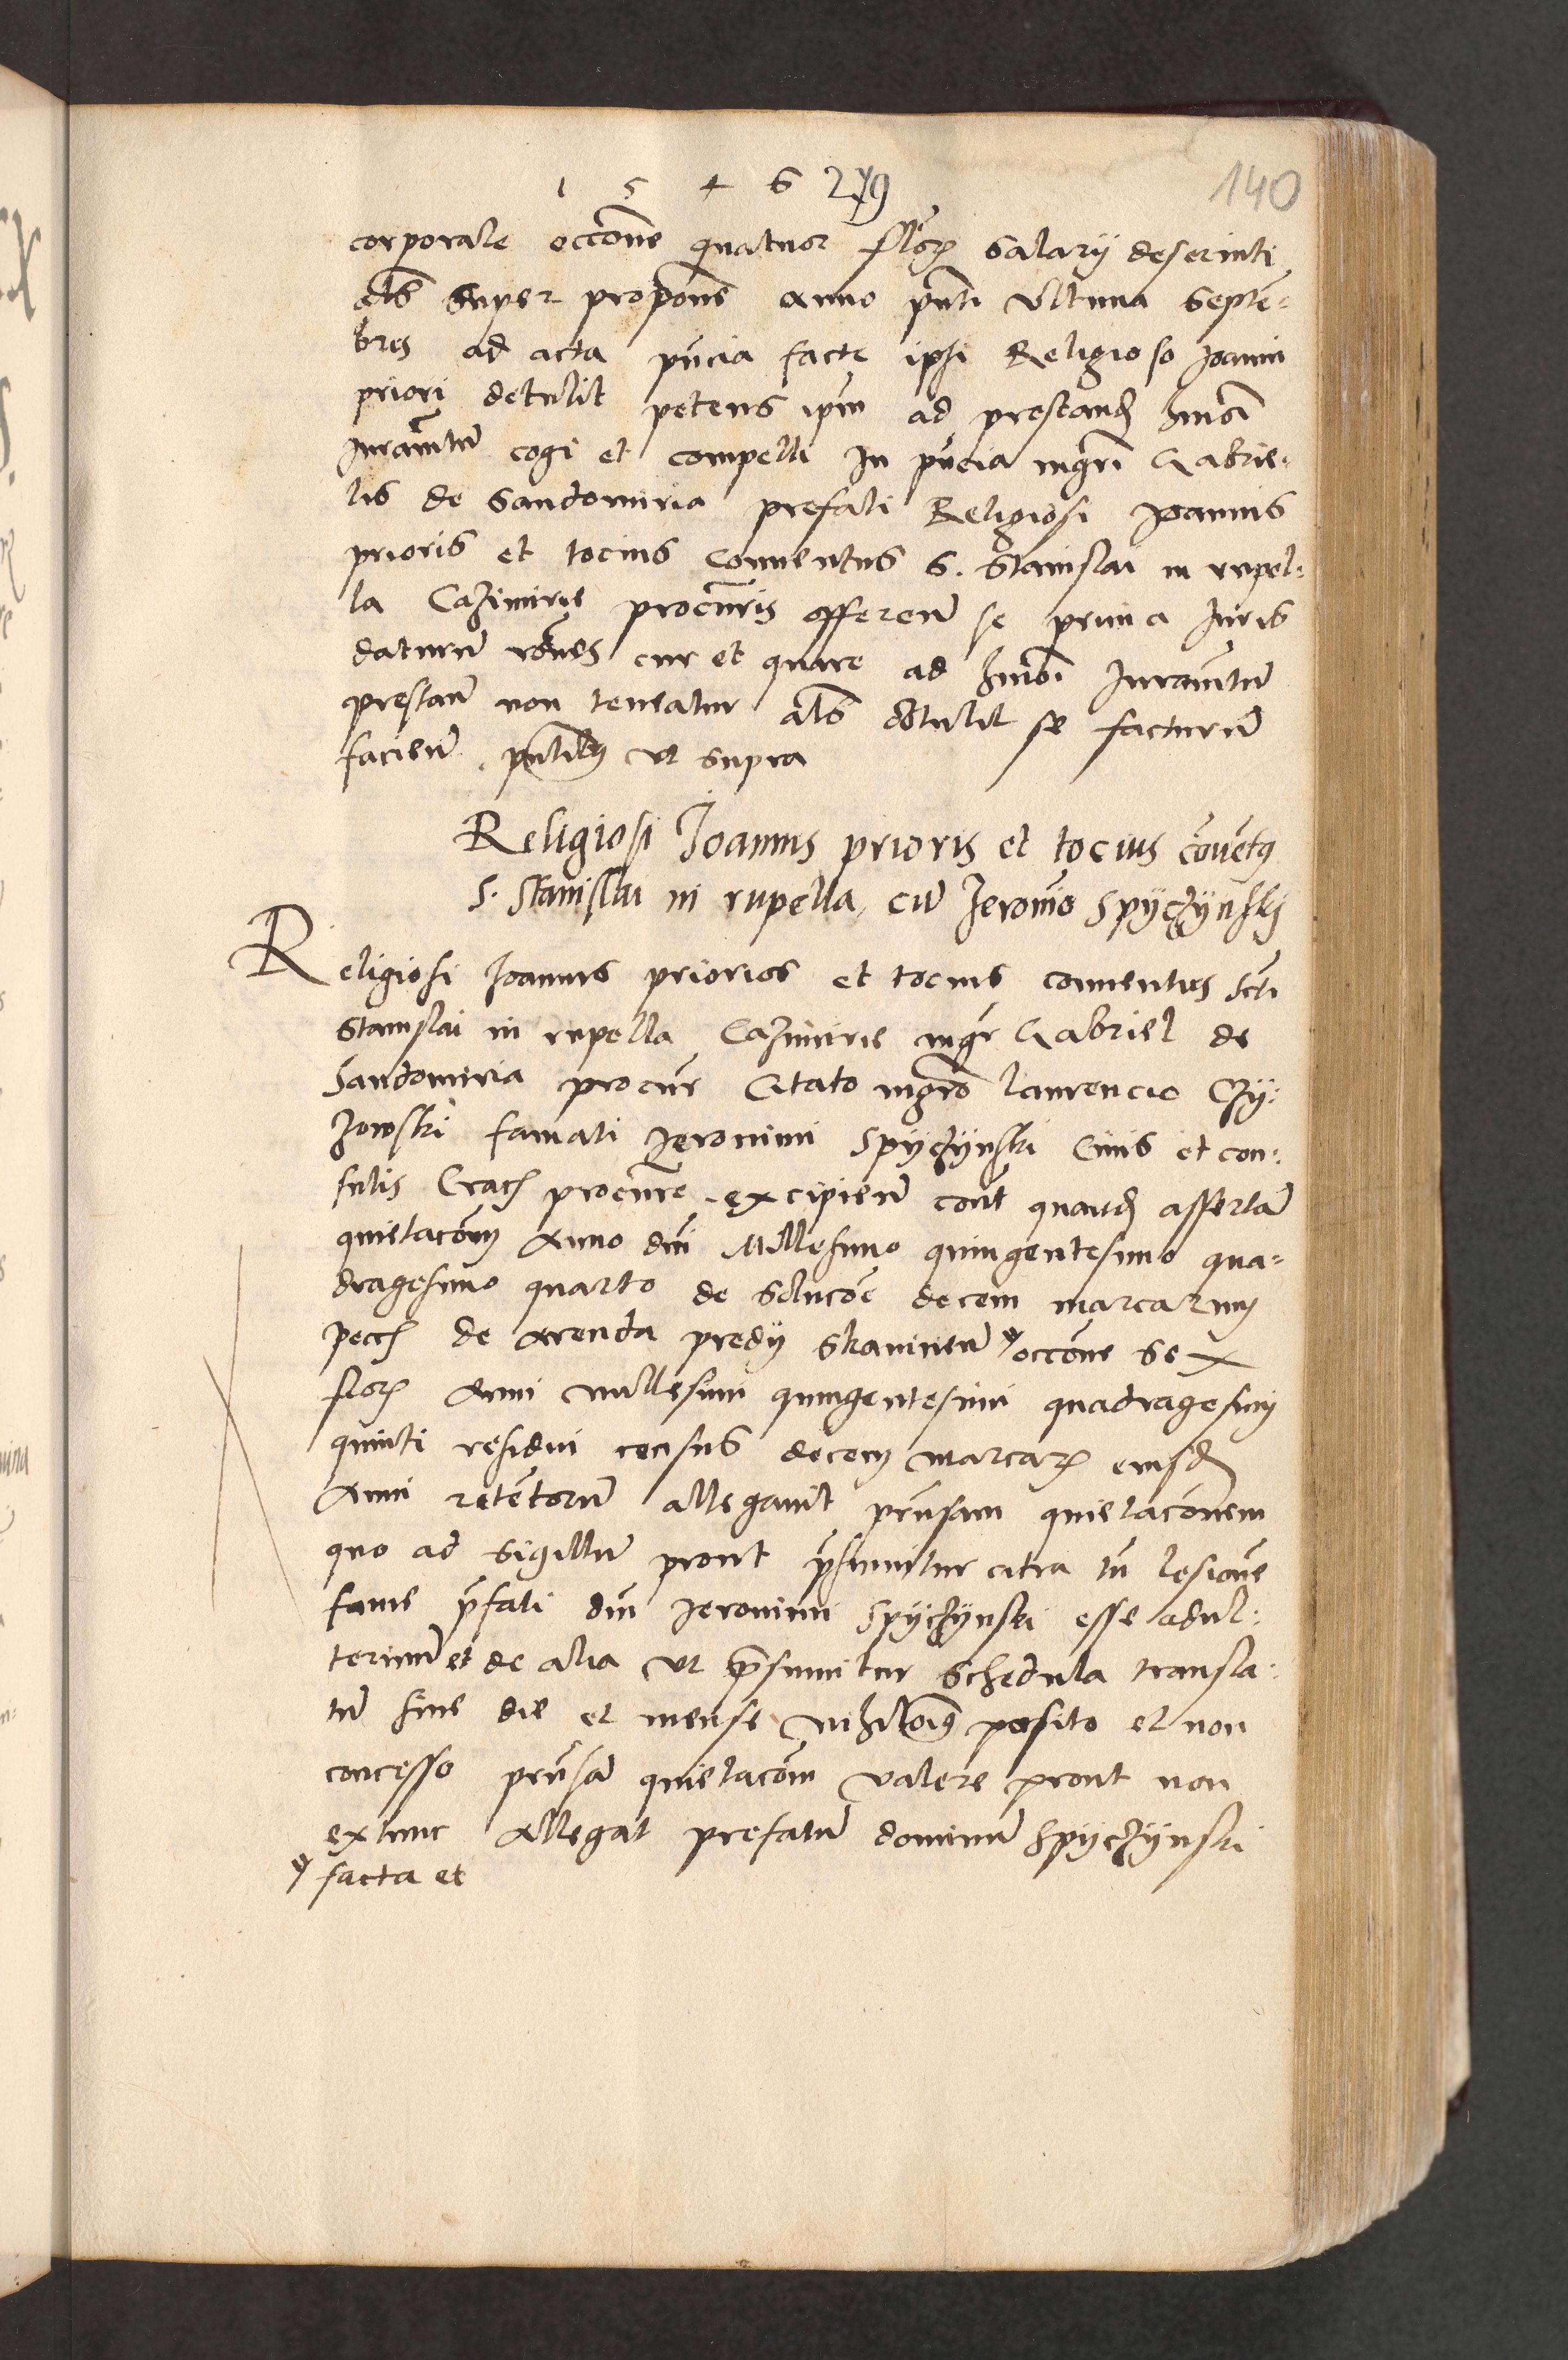 1 5 4 6 279
140
corporale occone quatuor flor salarÿ deservitj
als super propone Anno pnti ultima Septem=
bris ad acta pncia facte ipsi Religioso Joanni
priori detulit petens ipm ad prestand hmoi
Juramtu cogi et compelli In pncia mgri Gabrie=
lis de Sandomiria prefati Religiosi Joannis
prioris et tocius Conventus S. Stanislai in rupel=
la Cazimirie procuris offeren se prima Juris
daturu rones cur et quare ad hmoi Juramtu
prestan non teneatur als obtulit se facturu
facien . pntibus ut supra
Religiosi Joannis prioris et tocius covetus
S. Stanislai in rupella, cu Jeronio Spÿczÿnskj
Religiosi Joannis prioris et tocius conventus scti
Stanislai in rupella Cazimirie mgr Gabriel de
Sandomiria procur Citato mgro laurencio Czÿ=
zowski famati Jeronimi Spÿczÿnski Civis et con=
sulis Crac procure excipien cont quand assertam
quietacom Anno dni Millesimo quingentesimo qua=
dragesimo quarto de solucoe decem marcarum
pecc de Arenda predÿ Skavinen occone sex
flor Anni millesimi quingentesimi quadragesimj
quinti residui census decem marcar eiusd
Anni retentoru allegavit prnsam quietaconem
quo ad sigillu prout psumitur citra tn lesione
fame pfati dni Jeronimi Spÿczÿnski esse adul=
terinu et de alia ut psumitur Schedula transla=
tu sine die et mense nihilominus posito et non
concesso prnsa quietacom valere prout non
extunc Allegat prefatu dominu Spÿczÿnski
facta et